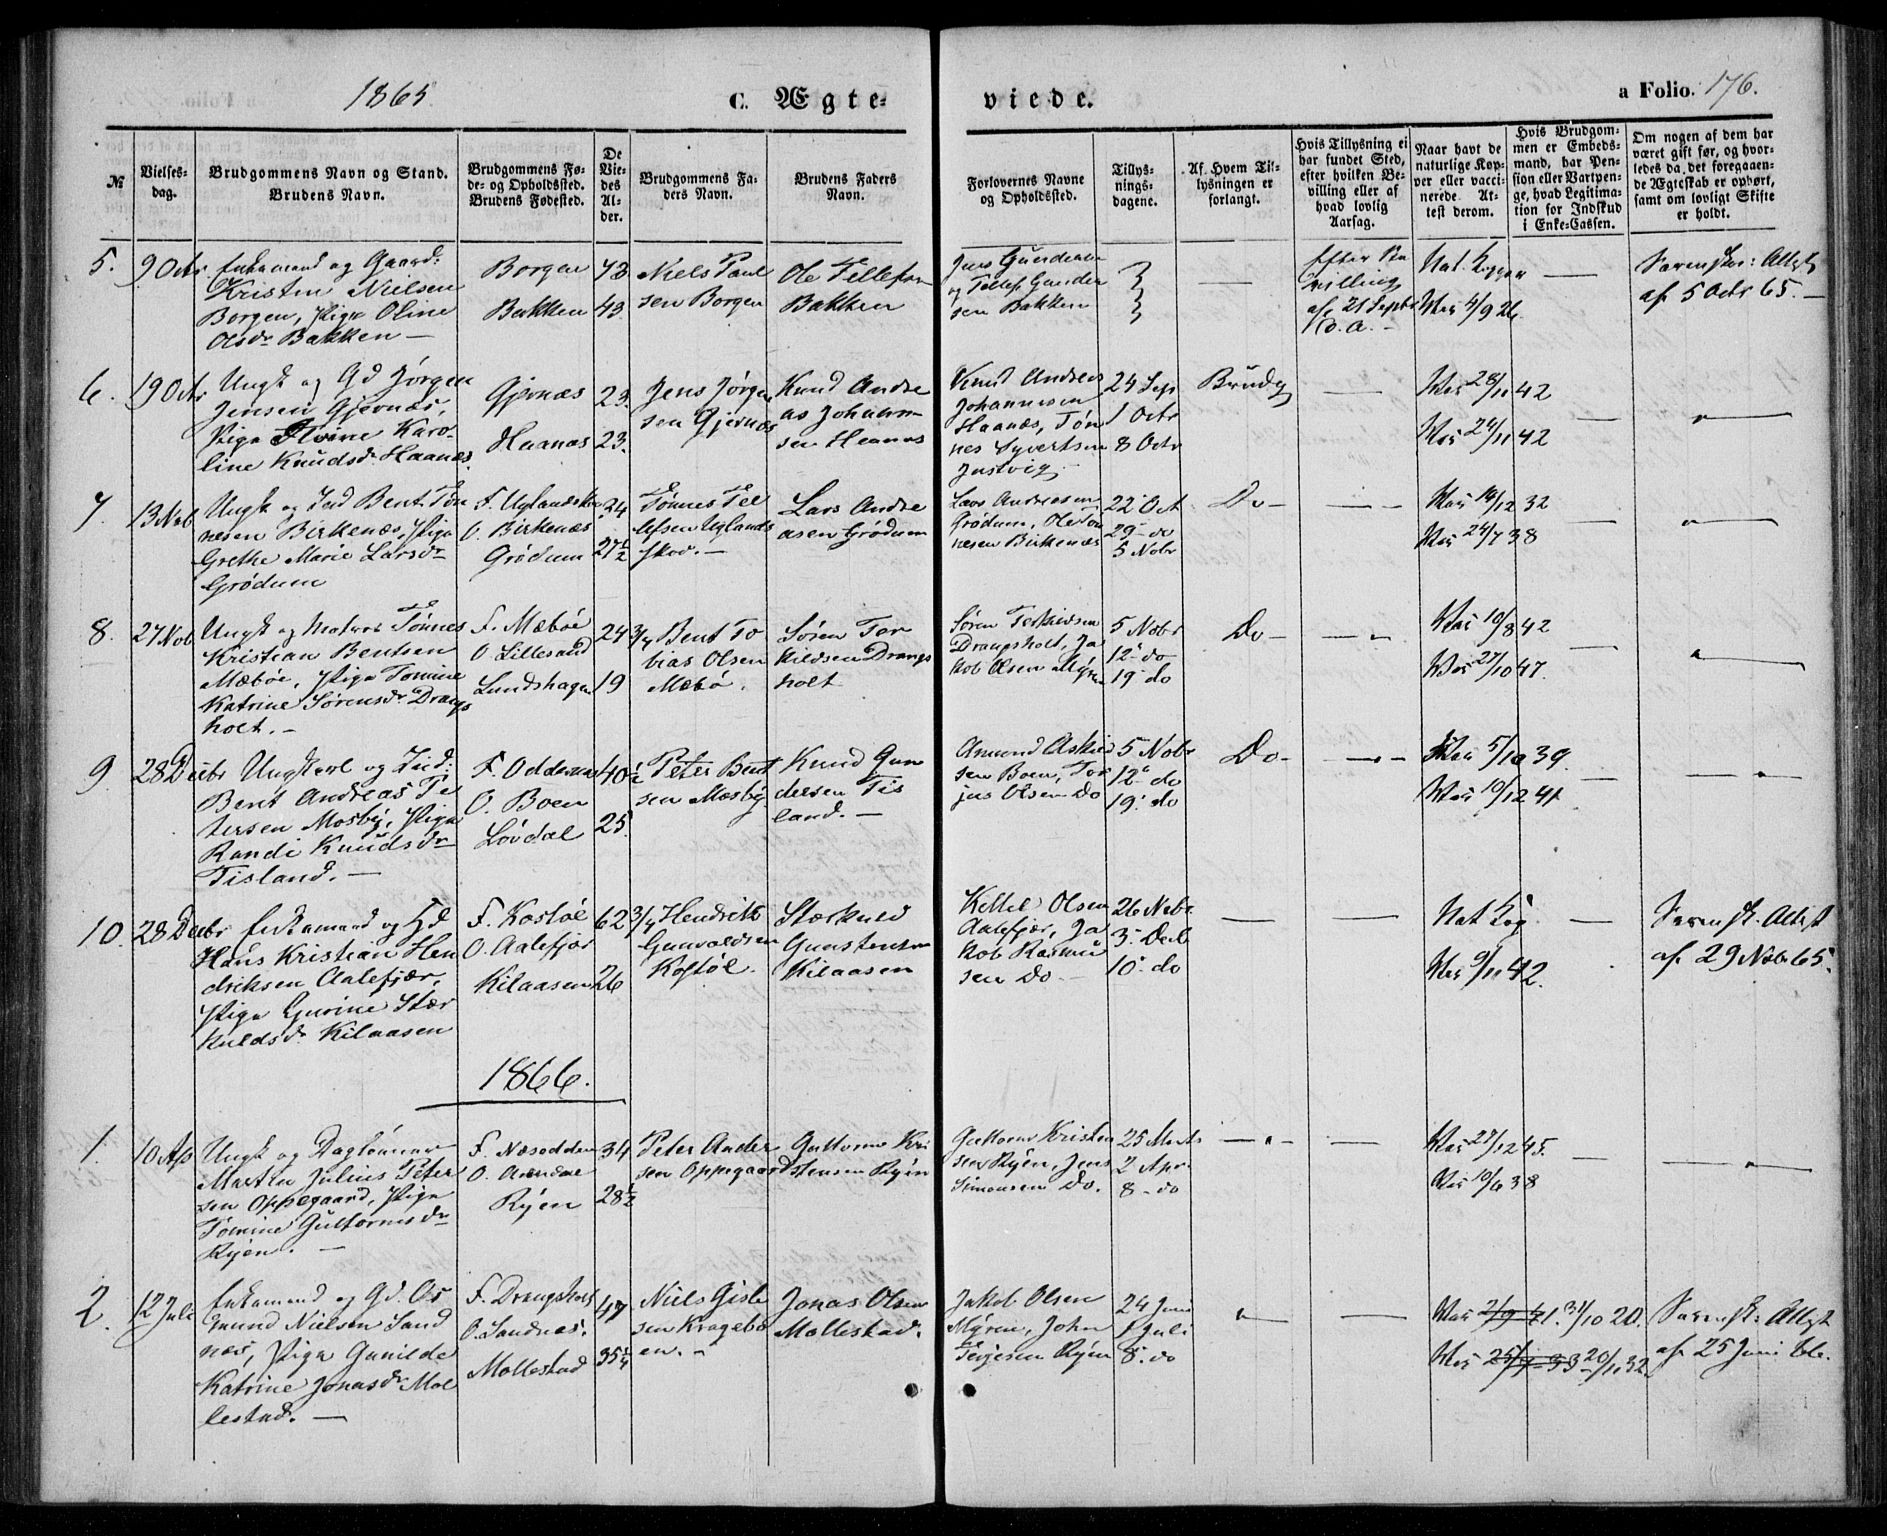 1865.
C. Ægte-
viede.
a Folio. 176.
№
Vielses-
dag.
Brudgommens Navn og Stand.
Brudens Navn.
Brudgommens Fø-
de- og Opholdssted.
Brudens Fødested.
De
Vie-
des
Al-
der.
Brudgommens Fa-
ders Navn.
Brudens Faders
Navn.
Forlovernes Navne
og Opholdssted.
Tillys-
nings-
dagene.
Af Hvem Til-
lysningen er
forlangt.
Hvis Tillysning ei
har fundet Sted,
efter hvilken Be-
villing eller af
hvad lovlig
Aarsag.
Naar havt de
naturlige Kop-
per eller vacci-
nerede. At-
test derom.
Hvis Brudgom-
men er Embeds-
mand, har Pen-
sion eller Vartpen-
ge, hvad Legitima-
tion for Indskud
i Enke-Cassen.
Om nogen af dem har
været gift før, og hvor-
ledes da det foregaaen-
de Ægteskab er ophørt,
samt om lovligt Skifte
er holdt.
5.
9 Octr
Enkemand og Gaard:
Kristen Nielsen
Borgen, Pige Oline
Olsdr Bakken —
Borgen
Bakken
43
43
Niels Paul
sen Borgen
Ole Tellefsen
Bakken
og Tellef Gunder
sen Bakken
—
Efter Be
villing
af 21 Septbr
d. A. —
Nat. Kopper
4/9 26
—
Skifte Attest
af 5 Octr 65. —
6.
19 Octr
Ungk og Gd Jørgen
Jensen Gjernæs,
Pige Karo-
line Knudsdr Haanæs.
Gjernæs
Haanæs
23.
23.
Jens Jørgen
sen Gjernæs
Knud Andre
as Johann-
sen Haanæs
Knud Andreas
Johannesen
Haanæs, Tøn
nes Syvertsen
Justvig.
24 Sep
1 Octr
8 Octr
Brudg
—
Vac 28/11 42
Vac 24/11 42
—
7.
13 Nob
Ungk og Ind Bent Tøn
nesen Birkenæs, Pige
Grethe Marie Larsdr
Grødum
F. Uglandsskov
O. Birkenæs
Grødum
24
27 1/2
Tønnes Tel
lefsen Uglands
skov. —
Lars Andre
asen Grødum
Lars Andreasen
Grødum, Ole Tøn
nesen Birkenæs
22 Oct
29 do
5 Nobr
Do —
Vac 14/12 32
Vac 24/7 38
—
8.
27 Nob
Ungk og Matros Tønnes
Kristian Bentsen
Mæbøe, Pige Tomine
Katrine Sørensdr Drangs
holt. —
F. Mæbøe
O. Lillesand
Lundshagen
24 3/4
19
Bent To
bias Olsen
Mæbø.
Søren Ter
kildsen Drangs
holt
Søren Terkildsen
Drangsholt, Ja
kob Olsen Myren
5 Nobr
12 do
19 do
Do —
Vac 10/8 42
Vac 27/10 47.
—
9
28 Decbr
Ungkarl og Ind:
Bent Andreas Pe
tersen Mosby, Pige
Randi Knudsdr
Tisland. —
F. Oddernæs
O. Boen
Løvdal
40 1/2
25.
Peter Bent
sen Mosby
Knud Gun
dersen Tis
land. —
Amund Askild
sen Boen, Tor
jus Olsen Do
5 Nobr
12 do
19. do
Do —
Vac 5/10 39.
Vac 10/12 41
—
10.
28 Decbr
Enkemand og Gd
Hans Kristian Hen
driksen Aalefjær,
Pige Gurine Stær
kuldsdr Kilaasen
F. Kostøl
O. Aalefjær
Kilaasen
62 3/4
26
Hendrik
Gunvaldsen
Kostøl.
Stærkuld
Gunstensen
Kilaasen
Kittil Olsen
Aalefjær, Ja
kob Rasmu
sen Do
26 Nobr.
3. Decb
10. do
—
—
Nat. Kop
Vac 9/11 42.
—
Skifte Attest
af 29 Nobr 65.
1866.
1.
10 Ap
Ungk og Daglønner
Martin Julius Peter
sen Oppegaard, Pige
Tomine Guttormsdr
Ryen. —
F. Næsodden
O. Arendal
Ryen
34
28 1/2
Peter Ander
sen Oppegaard
Guttorm Kri
stensen Ryen
Guttorm Kristen
sen Ryen, Jens
Simonsen Do.
25 Marts
2 Apr.
8 do
—
Vac 27/12 45.
Vac 10/6 38
—
2.
12 Juli
Enkemand og Gd. Os
mund Nielsen Sand
næs, Pige Gunilde
Katrine Jonasdr Mol
lestad. —
F. Drangsholt
O. Sandnæs.
Mollestad
47
35 1/4
Niels Gisle
sen Kragebo
en. —
Jonas Olsen
Mollestad.
Jakob Olsen
Myren, John
Terjesen Ryen
24 Juni
1 Juli
8. do
—
Vac 31/10 20.
Vac 20/11 32.
Skifte Attest
af 25 Juni 66.